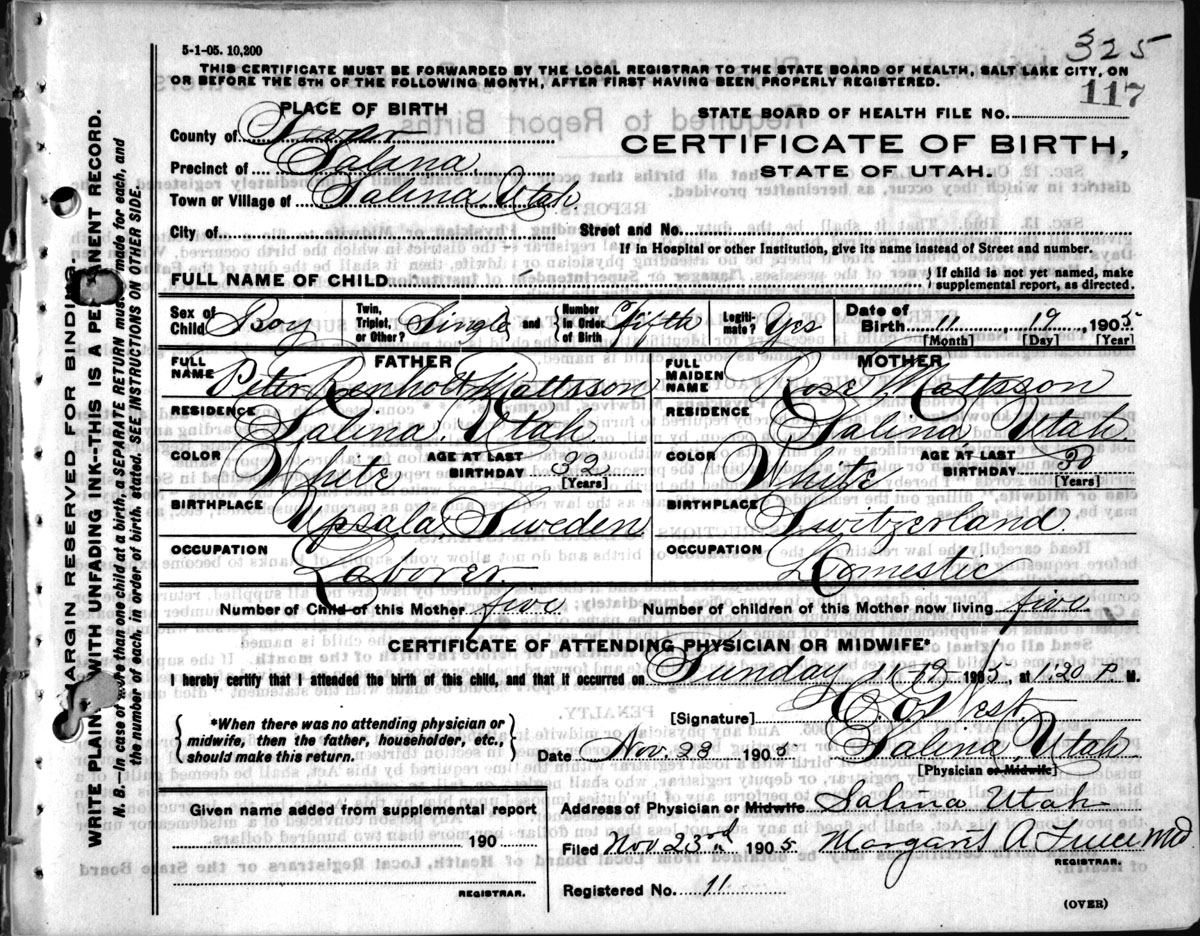 5-1-05. 10,200
325
THIS CERTIFICATE MUST BE FORWARDED BY THE LOCAL REGISTRAR TO THE STATE BOARD OF HEALTH, SALT LAKE CITY, ON
OR BEFORE THE 5TH OF THE FOLLOWING MONTH, AFTER FIRST HAVING BEEN PROPERLY REGISTERED.
117
PLACE OF BIRTH
STATE BOARD OF HEALTH FILE NO.
County of Sevier
CERTIFICATE OF BIRTH,
Precinct of Salina
STATE OF UTAH.
Town or Village of Salina, Utah.
City of Street and No.
If in Hospital or other Institution, give its name instead of Street and number.
FULL NAME OF CHILD
} If child is not yet named, make
supplemental report, as directed.
Sex of Child Boy Twin, Triplet, or Other? Single and { Number in Order of Birth Fifth Legiti-mate? Yes Date of Birth 11, 19, 1905
[Month] [Day] [Year]
FATHER MOTHER
FULL NAME Peter Renholt Mattsson FULL MAIDEN NAME Rose Mattsson
RESIDENCE Salina, Utah RESIDENCE Salina Utah.
COLOR White AGE AT LAST BIRTHDAY 32 [Years] COLOR White AGE AT LAST BIRTHDAY 30 [Years]
BIRTHPLACE Upsala, Sweden BIRTHPLACE Switzerland.
OCCUPATION Laborer. OCCUPATION Domestic
Number of Child of this Mother five Number of children of this Mother now living five.
CERTIFICATE OF ATTENDING PHYSICIAN OR MIDWIFE*
I hereby certify that I attended the birth of this child, and that it occurred on Sunday 11 19 1905, at 1:20 P. M.
{ *When there was no attending physician or midwife, then the father, householder, etc., should make this return. }
[Signature] West.
Date Nov. 23 1905 Salina, Utah
[Physician or Midwife]
Given name added from supplemental report
190
REGISTRAR.
Address of Physician or Midwife Salina Utah
Filed Nov 23rd 1905 Margaret A MD
REGISTRAR.
Registered No. 11
(OVER)
MARGIN RESERVED FOR BINDING.
WRITE PLAINLY WITH UNFADING INK--THIS IS A PERMANENT RECORD.
N. B.--In case of more than one child at a birth, a SEPARATE RETURN must made for each, and
the number of each, in order of birth, stated. SEE INSTRUCTIONS ON OTHER SIDE.